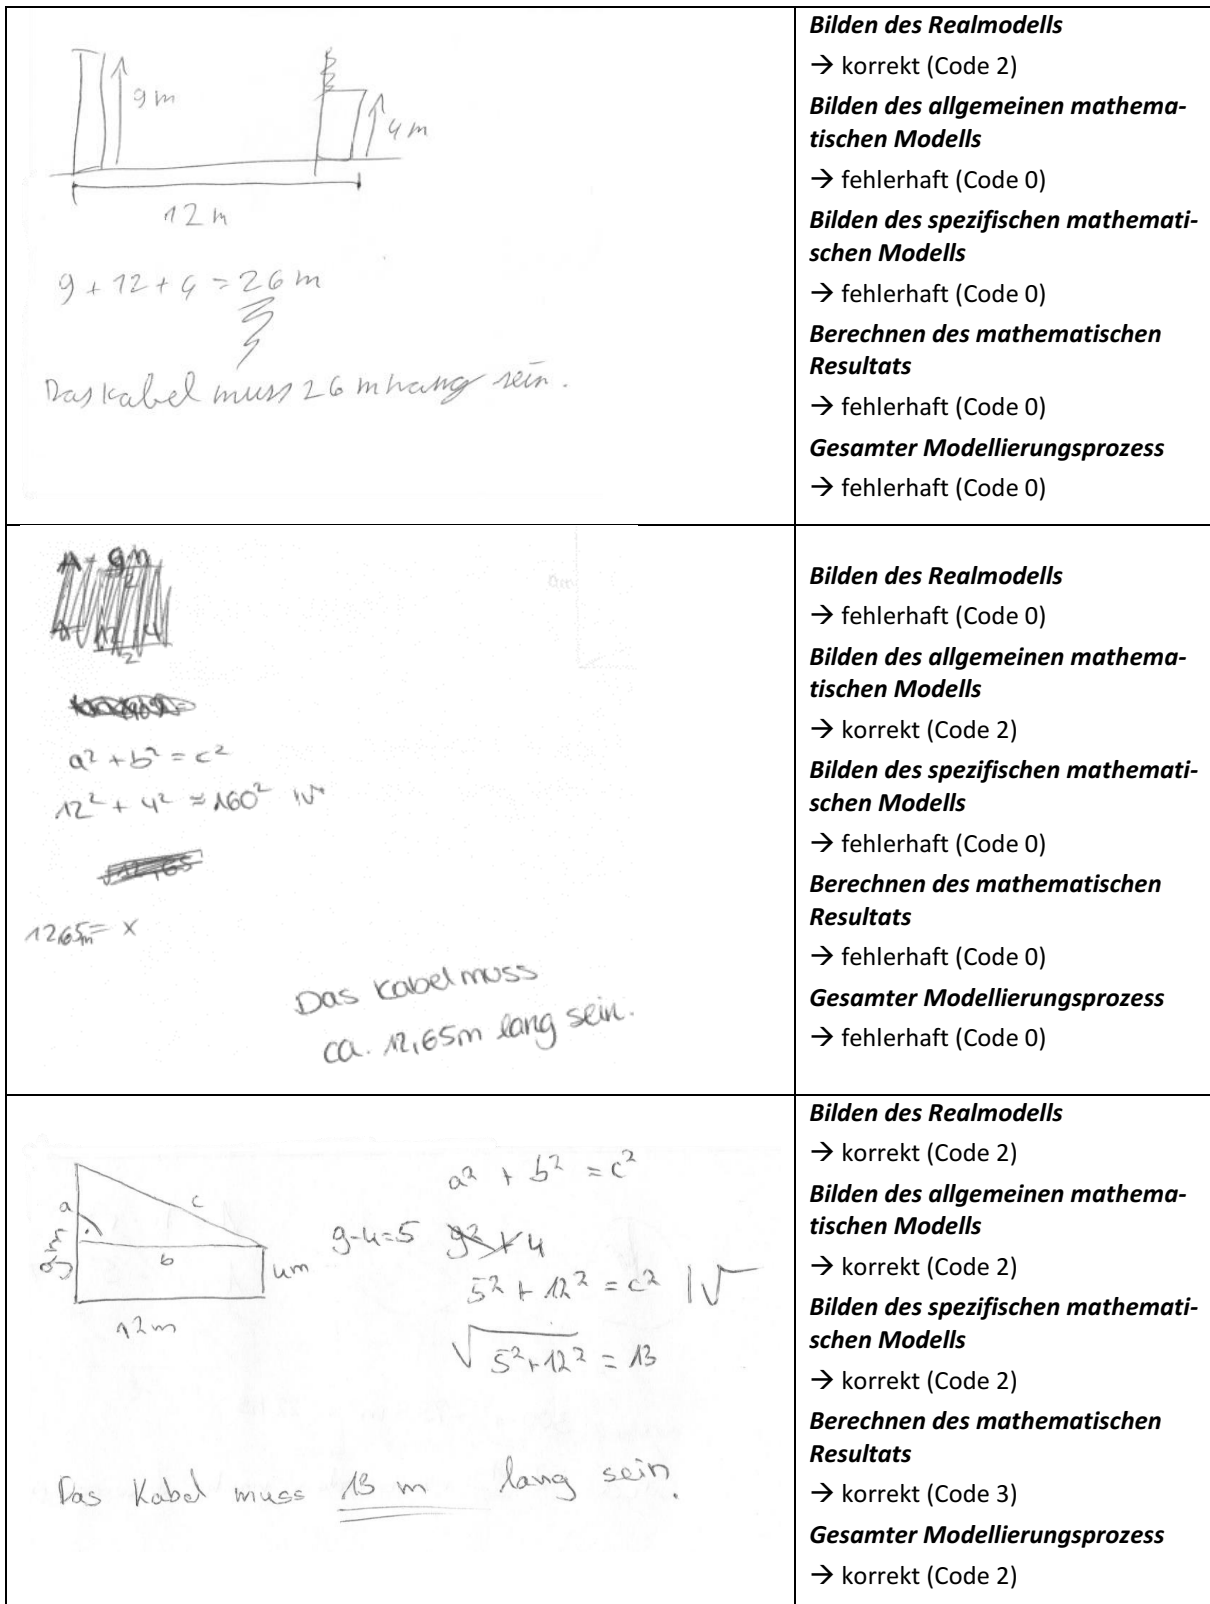 9 m
4 m
12 m
9 + 12 + 4 = 26 m
Das Kabel muss 26 m lang sein.
Bilden des Realmodells
→ korrekt (Code 2)
Bilden des allgemeinen mathema-
tischen Modells
→ fehlerhaft (Code 0)
Bilden des spezifischen mathemati-
schen Modells
→ fehlerhaft (Code 0)
Berechnen des mathematischen
Resultats
→ fehlerhaft (Code 0)
Gesamter Modellierungsprozess
→ fehlerhaft (Code 0)
a² + b² = c²
12² + 4² ≈ 160² |√
12,65m = x
Das Kabel muss
ca. 12,65m lang sein.
Bilden des Realmodells
→ fehlerhaft (Code 0)
Bilden des allgemeinen mathema-
tischen Modells
→ korrekt (Code 2)
Bilden des spezifischen mathemati-
schen Modells
→ fehlerhaft (Code 0)
Berechnen des mathematischen
Resultats
→ fehlerhaft (Code 0)
Gesamter Modellierungsprozess
→ fehlerhaft (Code 0)
a
c
b
9m
4m
12m
a² + b² = c²
9-4=5 9² + 4
5² + 12² = c² |√
√5²+12² = 13
Das Kabel muss 13 m lang sein.
Bilden des Realmodells
→ korrekt (Code 2)
Bilden des allgemeinen mathema-
tischen Modells
→ korrekt (Code 2)
Bilden des spezifischen mathemati-
schen Modells
→ korrekt (Code 2)
Berechnen des mathematischen
Resultats
→ korrekt (Code 3)
Gesamter Modellierungsprozess
→ korrekt (Code 2)